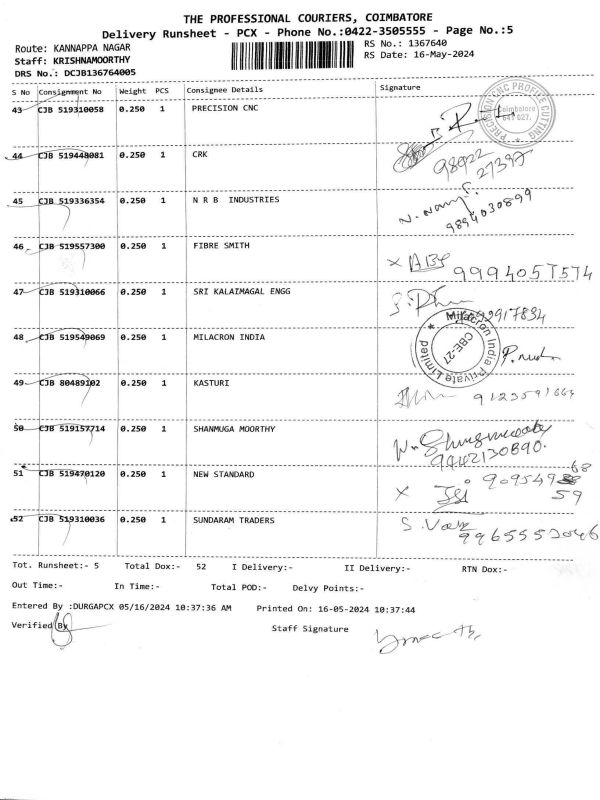 THE PROFESSIONAL COURIERS, COIMBATORE
Delivery Runsheet - PCX - Phone No.:0422-3505555 - Page No.:5
Route: KANNAPPA NAGAR
RS No.: 1367640
Staff: KRISHNAMOORTHY
RS Date: 16-May-2024
DRS No.: DCJB136764005
S No Consignment No Weight PCS Consignee Details Signature
43 CJB 519310058 0.250 1 PRECISION CNC
PRECISION CNC PROFILE CUTTING
Coimbatore
641 027.
44 CJB 519448081 0.250 1 CRK
98922
27392
45 CJB 519336354 0.250 1 N R B INDUSTRIES
9894030899
46 CJB 519557300 0.250 1 FIBRE SMITH
9994057574
47 CJB 519310066 0.250 1 SRI KALAIMAGAL ENGG
48 CJB 519549069 0.250 1 MILACRON INDIA
Milacron India Private Limited
CBE-27
49 CJB 80489102 0.250 1 KASTURI
9123591664
50 CJB 519157714 0.250 1 SHANMUGA MOORTHY
9442130890.
51 CJB 519470120 0.250 1 NEW STANDARD
59
52 CJB 519310036 0.250 1 SUNDARAM TRADERS
9965553046
Tot. Runsheet:- 5 Total Dox:- 52 I Delivery:- II Delivery:- RTN Dox:-
Out Time:- In Time:- Total POD:- Delvy Points:-
Entered By :DURGAPCX 05/16/2024 10:37:36 AM Printed On: 16-05-2024 10:37:44
Verified By
Staff Signature